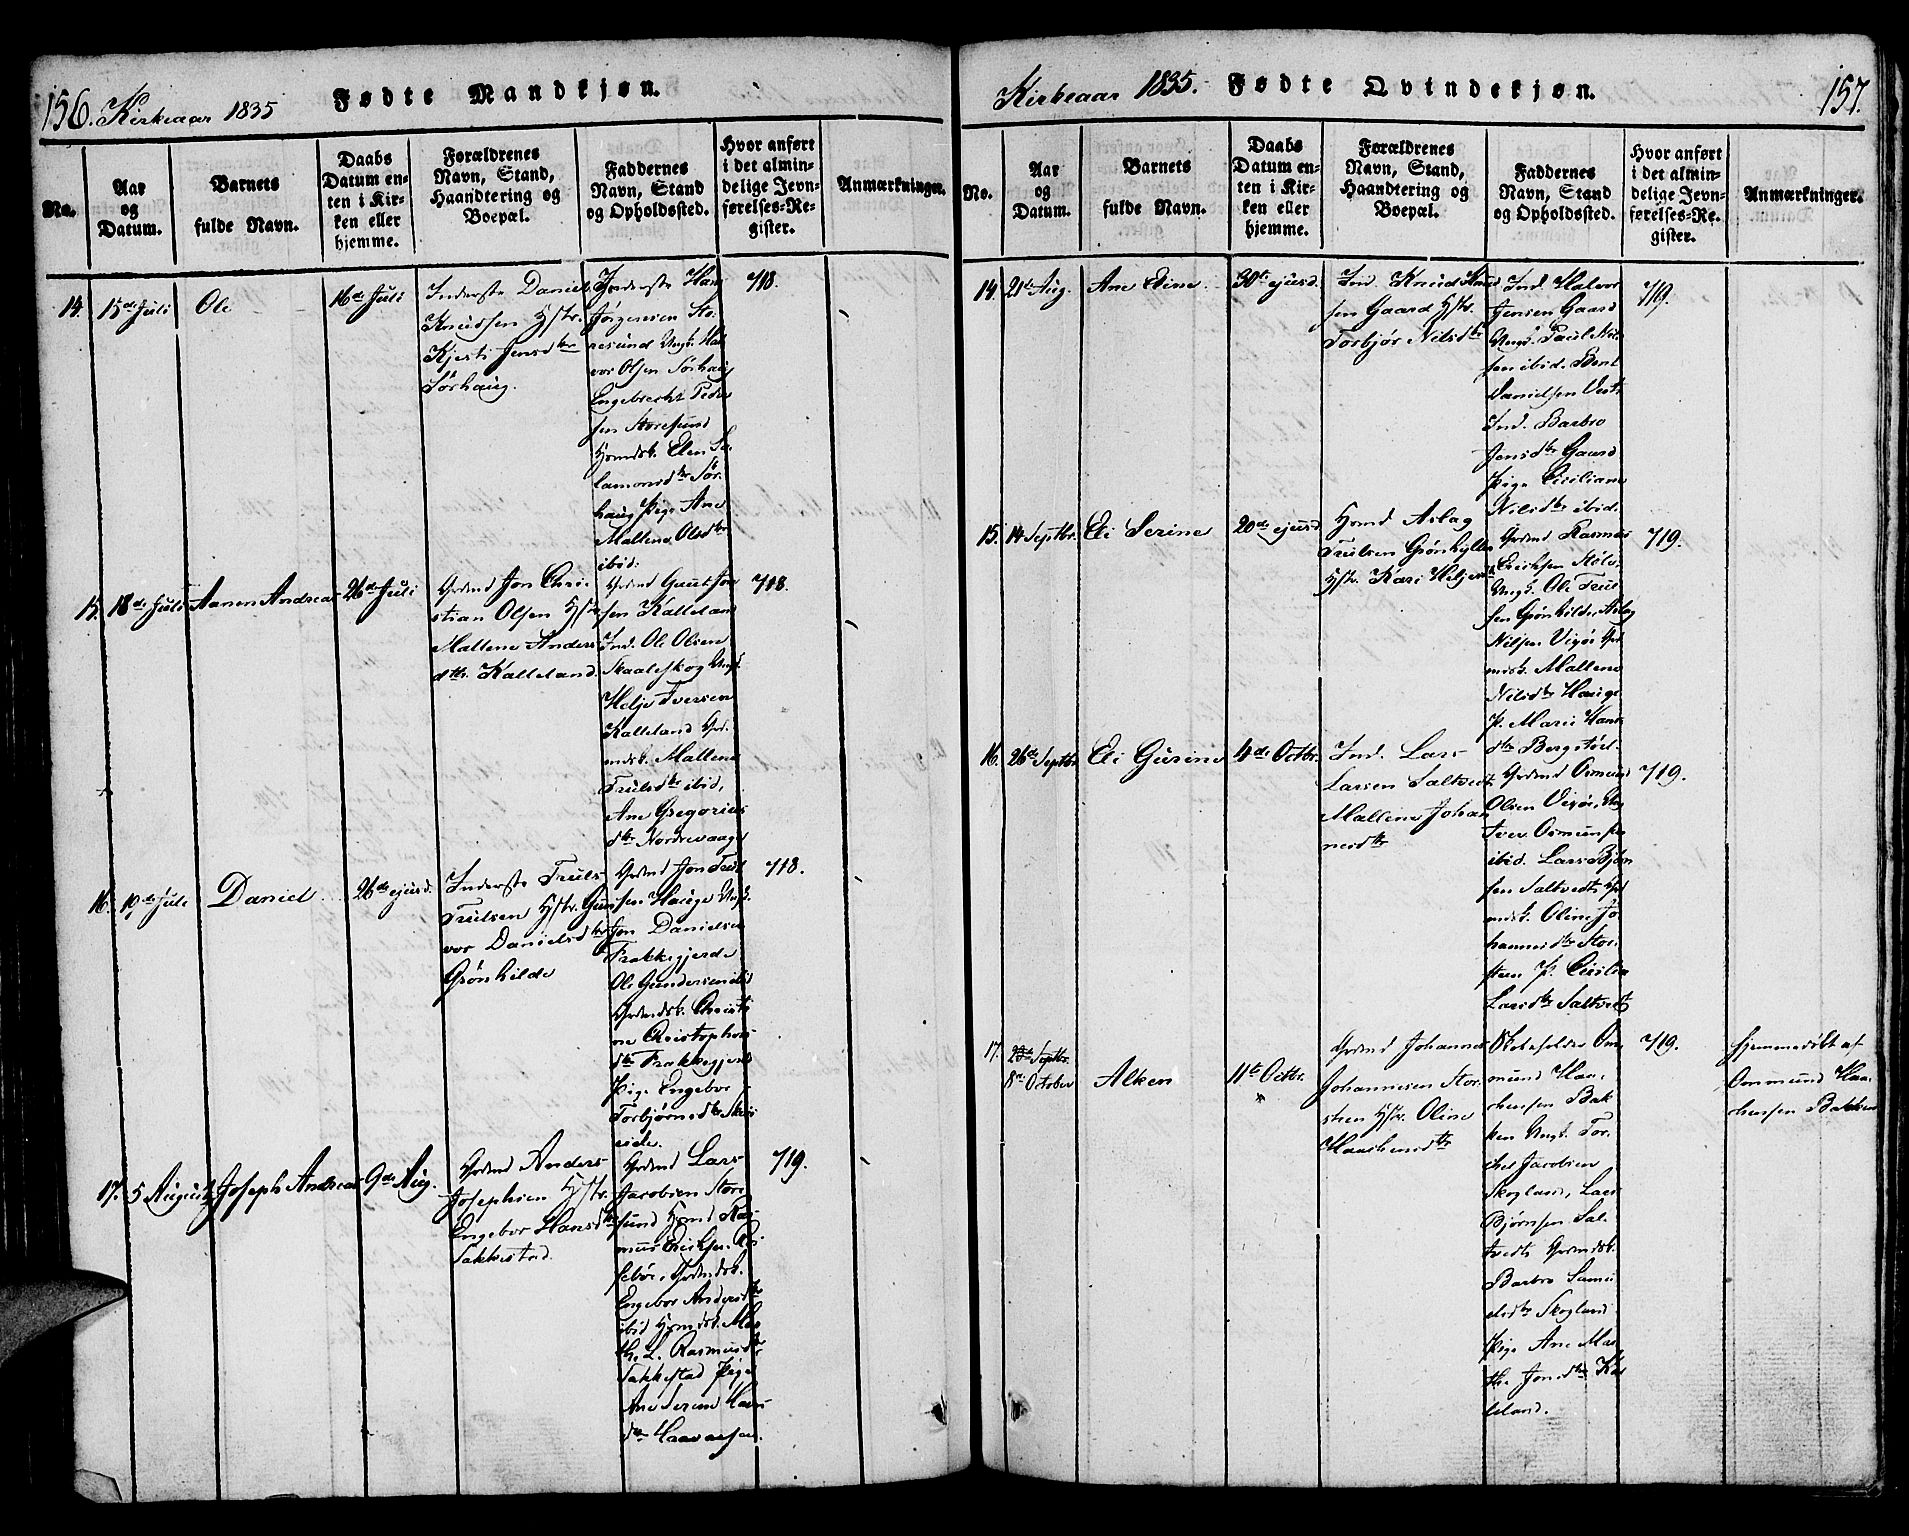 156. Kirkeaar 1835 Fødte Mandkjøn.
No.
Aar
og
Datum.
Barnets
fulde Navn.
Daabs
Datum en-
ten i Kir-
ken eller
hjemme.
Forældrenes
Navn, Stand,
Haandtering og
Boepæl.
Faddernes
Navn, Stand
og Opholdssted.
Hvor anført
i det almin-
delige Jevn-
førelses-Re-
gister.
Anmærkninger.
14.
15de Juli
Ole
16de Juli
Inderste Daniel
Knudsen Hstr.
Kjesti Jensdtr
Sørhaug.
Inderste Hans
Jørgensen Sto-
resund Ungk. Hal-
vor Olsen Sørhaug
Engebrecht Peder-
sen Storesund
Hsmdsk. Elen Sa-
lamonsdtr Sør-
haug Pige Ane
Mallene Olsdtr
ibid.
718.
15.
18de Juli
Aanen Andreas
26de Juli
Grdmd Jon Chri-
stian Olsen Hstr
Mallene Anders
dtr. Kalleland
Grdmd Gaut Jon
sen Kalleland
Ind. Ole Olsen
Skaaleskog Ungk.
Helje Iversen
Kalleland Grd-
mdsk. Mallene
Trulsdtr ibid,
Ane Gregorius
dtr Nordrevaage
718.
16.
19de Juli
Daniel
26de ejusd.
Inderste Truls
Trulsen Hstr. Gun
vor Danielsdtr
Grønhilde
Grdmd Jon Trul
sen Hauge Ungk.
Jon Danielsen
Frakkegjerde
Ole Gundersen ibid
Grdmdsk. Christi
ne Christophers
dtr Frakkegjerde
Pige Engebor
Torbjørnsdtr Skeis
eide.
718.
17.
5 August
Joseph Andreas
9de Aug.
Grdmd Anders
Josephsen Hstr.
Engebor Hansdtr
Sakkestad.
Grdmd Lars
Jacobsen Store
sund Hsmd Ras-
mus Eriksen Rø-
sebøe, Grdmdsk.
Engebor Andersdtr
ibid Hsmdsk. Mar-
the L. Rasmusdtr
Sakkestad Pige
Ane Serene Hans
dtr
719.
Kirkeaar 1835. Fødte Qvindekjøn. 157.
No.
Aar
og
Datum.
Barnets
fulde Navn.
Daabs
Datum en-
ten i Kir-
ken eller
hjemme.
Forældrenes
Navn, Stand,
Haandtering og
Boepæl.
Faddernes
Navn, Stand
og Opholdssted.
Hvor anført
i det almin-
delige Jevn-
førelses-Re-
gister.
Anmærkninger.
14.
21de Aug.
Ane Eline
30te ejusd.
Ind. Knud Knud
sen Gaard Hstr.
Torbjør Nilsdtr
Ind. Halvor
Jensen Gaard
Ungk. Paul Nil-
sen ibid. Bent
Danielsen Vestr
Ind. Barbro
Jensdtr Gaard
Pige Ciciliane
Nilsdtr ibid.
719.
15.
14 Septbr.
Eli Serine
20de ejusd
Hsmd Aslag
Trulsen Grønhylle
Hstr. Kari Heljesdtr
Grdmd Rasmus
Erichsen Støls-
Ungk. Ole Trul
sen Grønhilde, Aslag
Nilsen Vigør Grd
mdsk. Mallene
Nilsdtr Hauge
P. Marie Hans
dtr Bergstøl.
719.
16.
26de Septbr
Eli Gurine
4de Octbr.
Ind. Lars
Larsen Saltvedt
Mallene Johan
nesdtr
Grdmd Osmund
Olsen Vigør, Ung
Iver Osmunsen
ibid. Lars Bjørn
sen Saltvedt Grd
mdsk. Oline Jo
hannesdtr Stor-
steen P. Cicilia
Larsdtr Saltvedt
719.
17.
28de Septbr.
8de October
Alken
11te Octbr.
Grdmd Johannes
Johannesen Stor-
steen Hstr. Oline
Haachensdtr
Skoleholder Om-
mund Haa-
chensen Bak-
ken Ungk. Tor-
chel Jacobsen
Skogland, Lars
Bjørnsen Sal-
tvedt Grdmdsk.
Barbro Samu
elsdtr Skogland
Pige Ane Mar-
the Jonsdtr Kal
leland.
719.
Hjemmedøbt af
Ommund Haa-
chensen Bakken